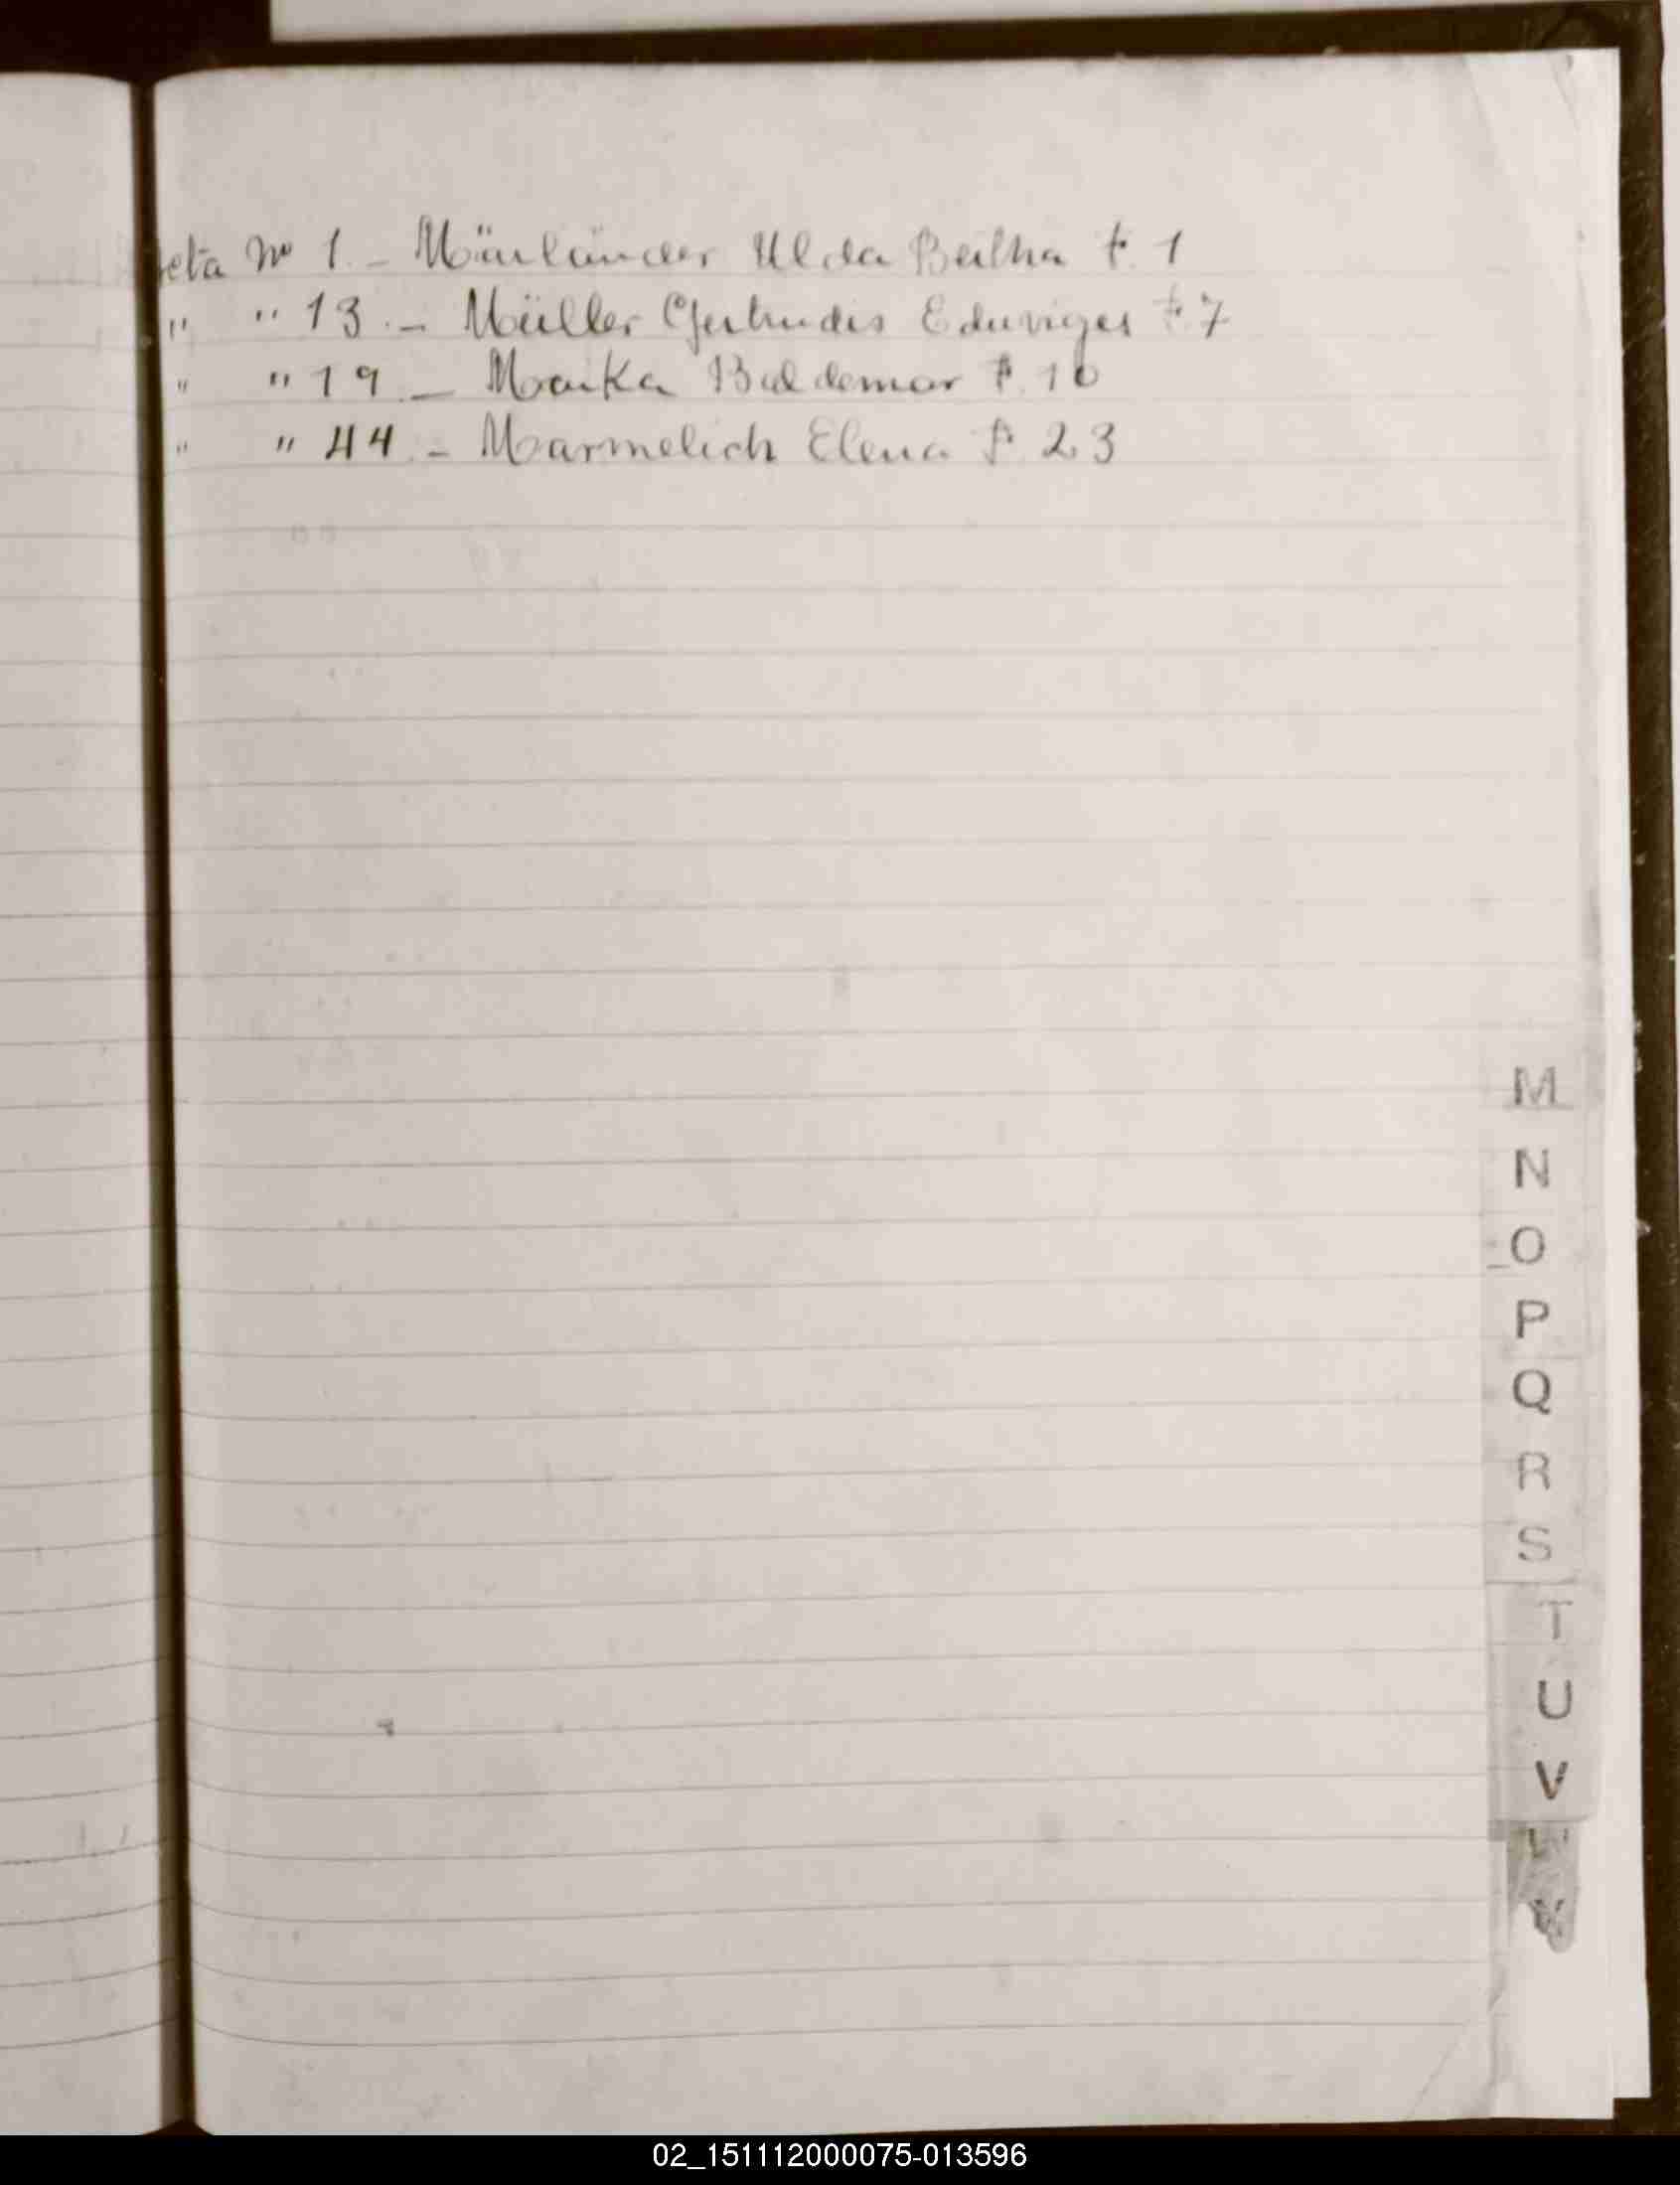 eta Nº 1. - Mänländer Ulda Bertha F. 1
" " 13. - Müller Gertrudis Eduviges F. 7
" " 19. - Manka Baldemar F. 10
" " 44. - Marmelich Elena F. 23
M
N
O
P
Q
R
S
T
U
V
02_151112000075-013596